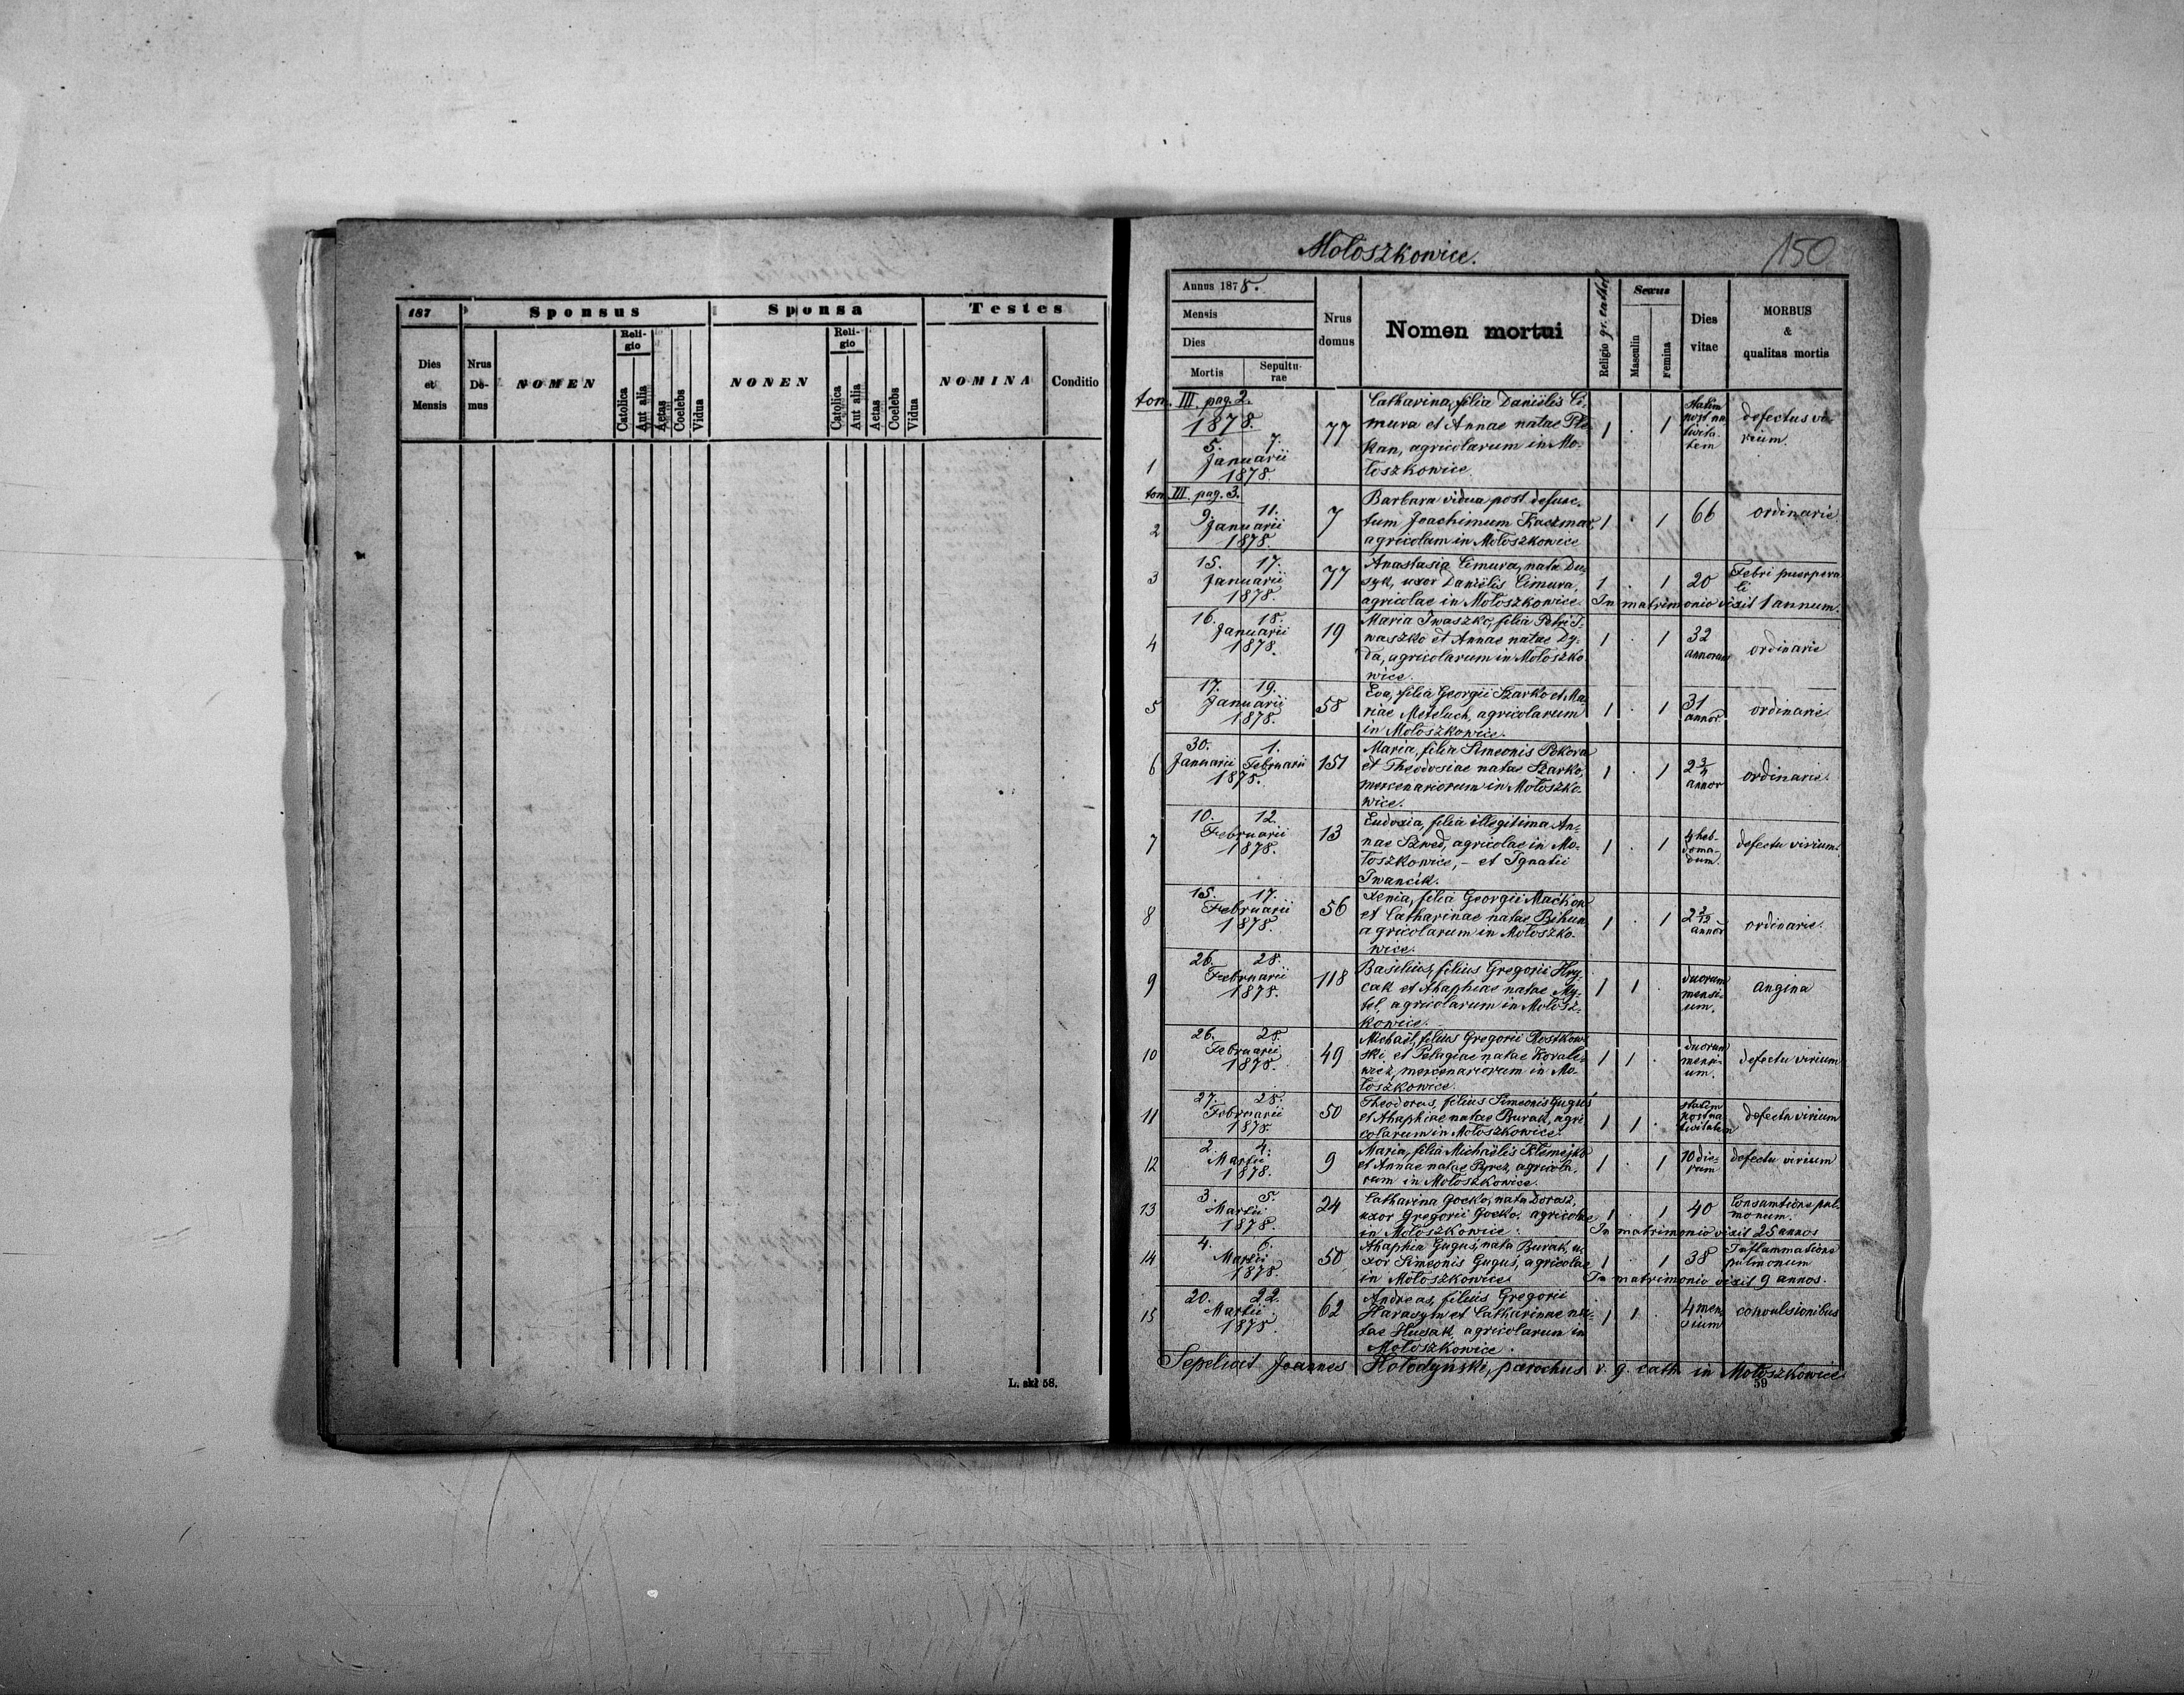 187
Sponsus
Sponsa
Testes
Dies
et
Mensis
Nrus
Do-
mus
NOMEN
Reli-
gio
Catolica
Aut alia
Aetas
Coelebs
Vidua
NONEN
Reli-
gio
Catolica
Aut alia
Aetas
Coelebs
Vidua
NOMINA
Conditio
L. skł 58.
Mołoszkowice.
150
Annus 1878.
Mensis
Dies
Mortis
Sepultu-
rae
Nrus
domus
Nomen mortui
Religio gr. cathol
Sexus
Masculin
Femina
Dies
vitae
MORBUS
&
qualitas mortis
tom. III. pag. 2.
1878.
5. 7.
Januarii
1878.
1
77
Catharina, filia Daniëlis Ci-
mura et Annae natae Ple-
kan, agricolarum in Mo-
łoszkowice
1 . 1
statim
post na
tivita-
tem
defectus vi-
rium.
tom. III. pag. 3.
2
9. 11.
Januarii
1878.
7
Barbara vidua post defunc-
tum Joachimum Kaczmar,
agricolam in Mołoszkowice
1 . 1
66
ordinarie
3
15. 17.
Januarii
1878.
77
Anastasia Cimura, nata Du-
syk, uxor Daniëlis Cimura,
agricolae in Mołoszkowice.
1 . 1
20
Febri puerpera
li
In matrimonio vixit 1 annum.
4
16. 18.
Januarii
1878.
19
Maria Iwaszko, filia Petri I-
waszko et Annae natae Dy-
da, agricolarum in Mołoszko
wice.
1 . 1
32
annorum
ordinarie
5
17. 19.
Januarii
1878.
58
Eva, filia Georgii Szarko et Ma-
riae Meteluch, agricolarum
in Mołoszkowice.
1 . 1
31
annor
ordinarie.
6
30. 1.
Januarii Februarii
1878.
151
Maria, filia Simeonis Pokora
et Theodosiae natae Szarko,
mercenariorum in Mołoszko-
wice.
1 . 1
2 3/4
annor
ordinarie.
7
10. 12.
Februarii
1878.
13
Eudoxia, filia illegitima An-
nae Szwed, agricolae in Mo-
łoszkowice, - et Ignatii
Iwancik.
1 . 1
4 heb-
doma-
dum.
defectu virium.
8
15. 17.
Februarii
1878.
56
Xenia, filia Georgii Maćkow
et Catharinae natae Bihun
agricolarum in Mołoszko-
wice.
1 . 1
annor
ordinarie.
9
26. 28.
Februarii
1878.
118
Basilius, filius Gregorii Hry-
cak et Ahaphiae natae My-
tel, agricolarum in Mołosz-
kowice.
1 1 .
duorum
mensi-
um.
angina
10
26. 28.
Februarii
1878.
49
Michaël, filius Gregorii Rostkow
ski et Pelagiae natae Kovale-
wicz, mercenariorum in Mo-
łoszkowice.
1 1 .
duorum
mensi-
um.
defectu virium
11
27. 28.
Februarii
1878.
50
Theodorus, filius Simeonis Guguś
et Ahaphiae natae Burak, agri
colarum in Mołoszkowice.
1 1 .
statim
post na
tivitatem
defectu virium
12
2. 4.
Martii
1878.
9
Maria, filia Michaëlis Klemejko
et Annae natae Pyrcz, agricola-
rum in Mołoszkowice.
1 . 1
10 die-
rum
defectu virium
13
3. 5
Martii
1878.
24
Catharina Gocko, nata Dorasz,
uxor Gregorii Gocko, agricolae
in Mołoszkowice.
1 . 1
40
Consumtione pul-
monum.
In matrimonio vixit 25 annos
14
4. 6.
Martii
1878.
50
Ahaphia Guguś, nata Burak, u-
xor Simeonis Guguś, agricolae
in Mołoszkowice
1 . 1
38
Inflammatione
pulmonum
In matrimonio vixit 9 annos.
15
20. 22.
Martii
1878.
62
Andreas, filius Gregorii
Harasym et Catharinae na-
tae Husak, agricolarum in
Mołoszkowice.
1 1 .
4 men
sium
convulsionibus
Sepelivit Joannes Hołodyński, parochus r. g. cath in Mołoszkowice
59